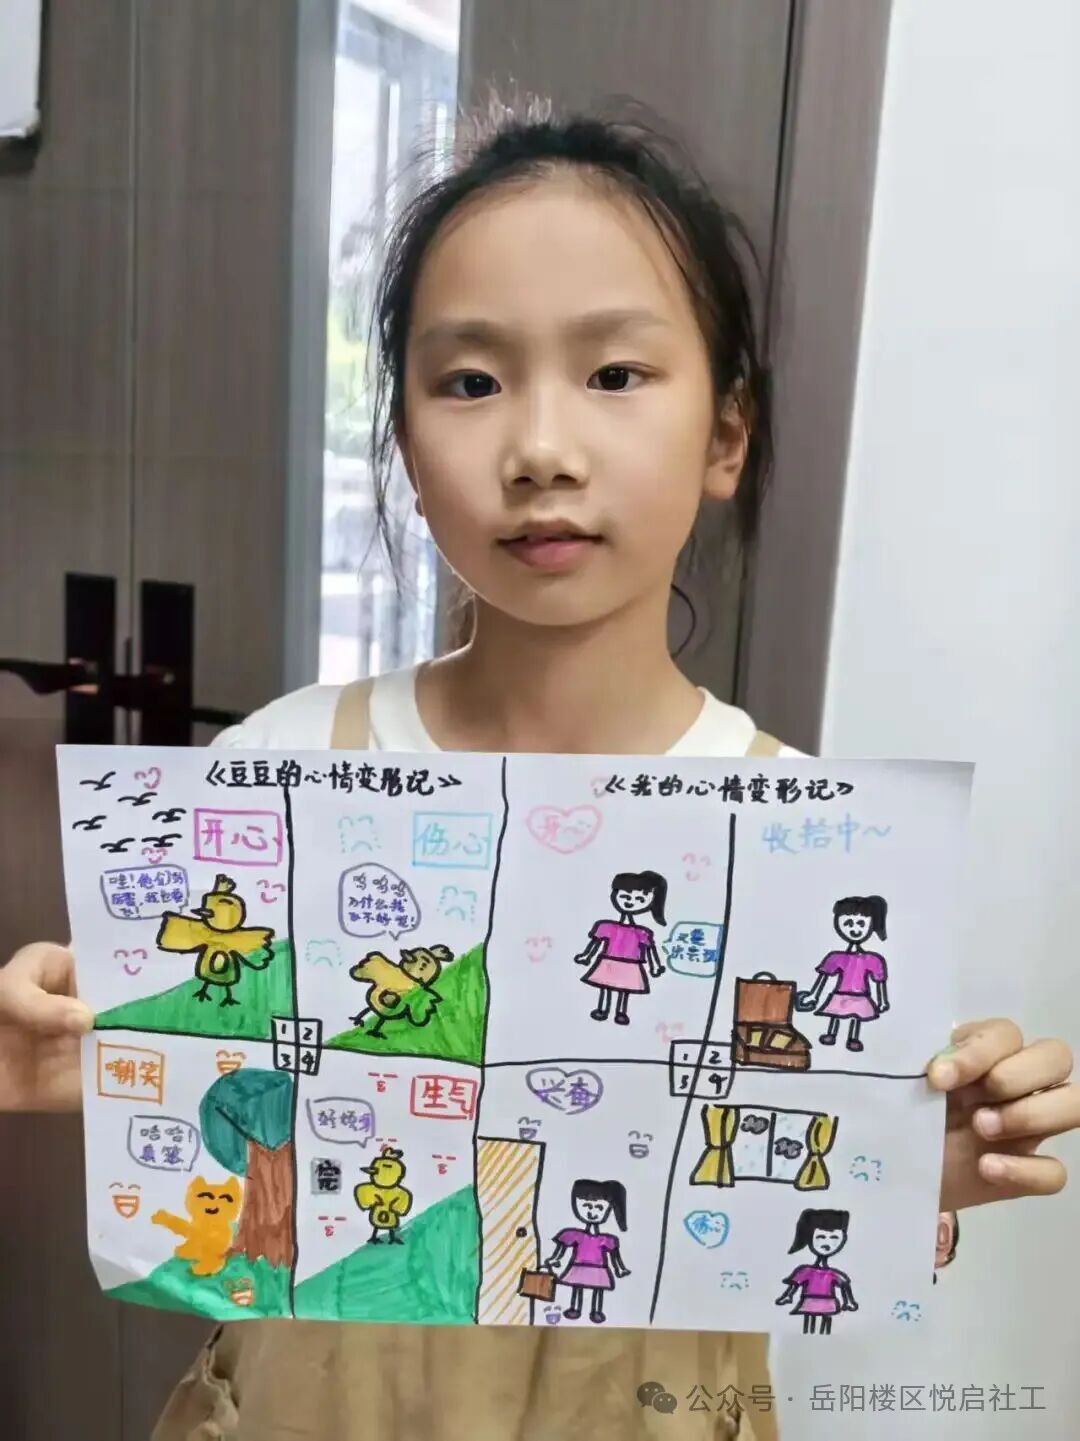 《豆豆的心情变形记》
开心
伤心
哇！他们好
厉害，我也要
飞！
呜呜呜
为什么我
飞不好呢！
1 2
3 4
嘲笑
哈哈！
真笨
生气
好烦
完
《我的心情变形记》
开心
收拾中~
又要
出去玩
1 2
3 4
兴奋
伤心
公众号 · 岳阳楼区悦启社工